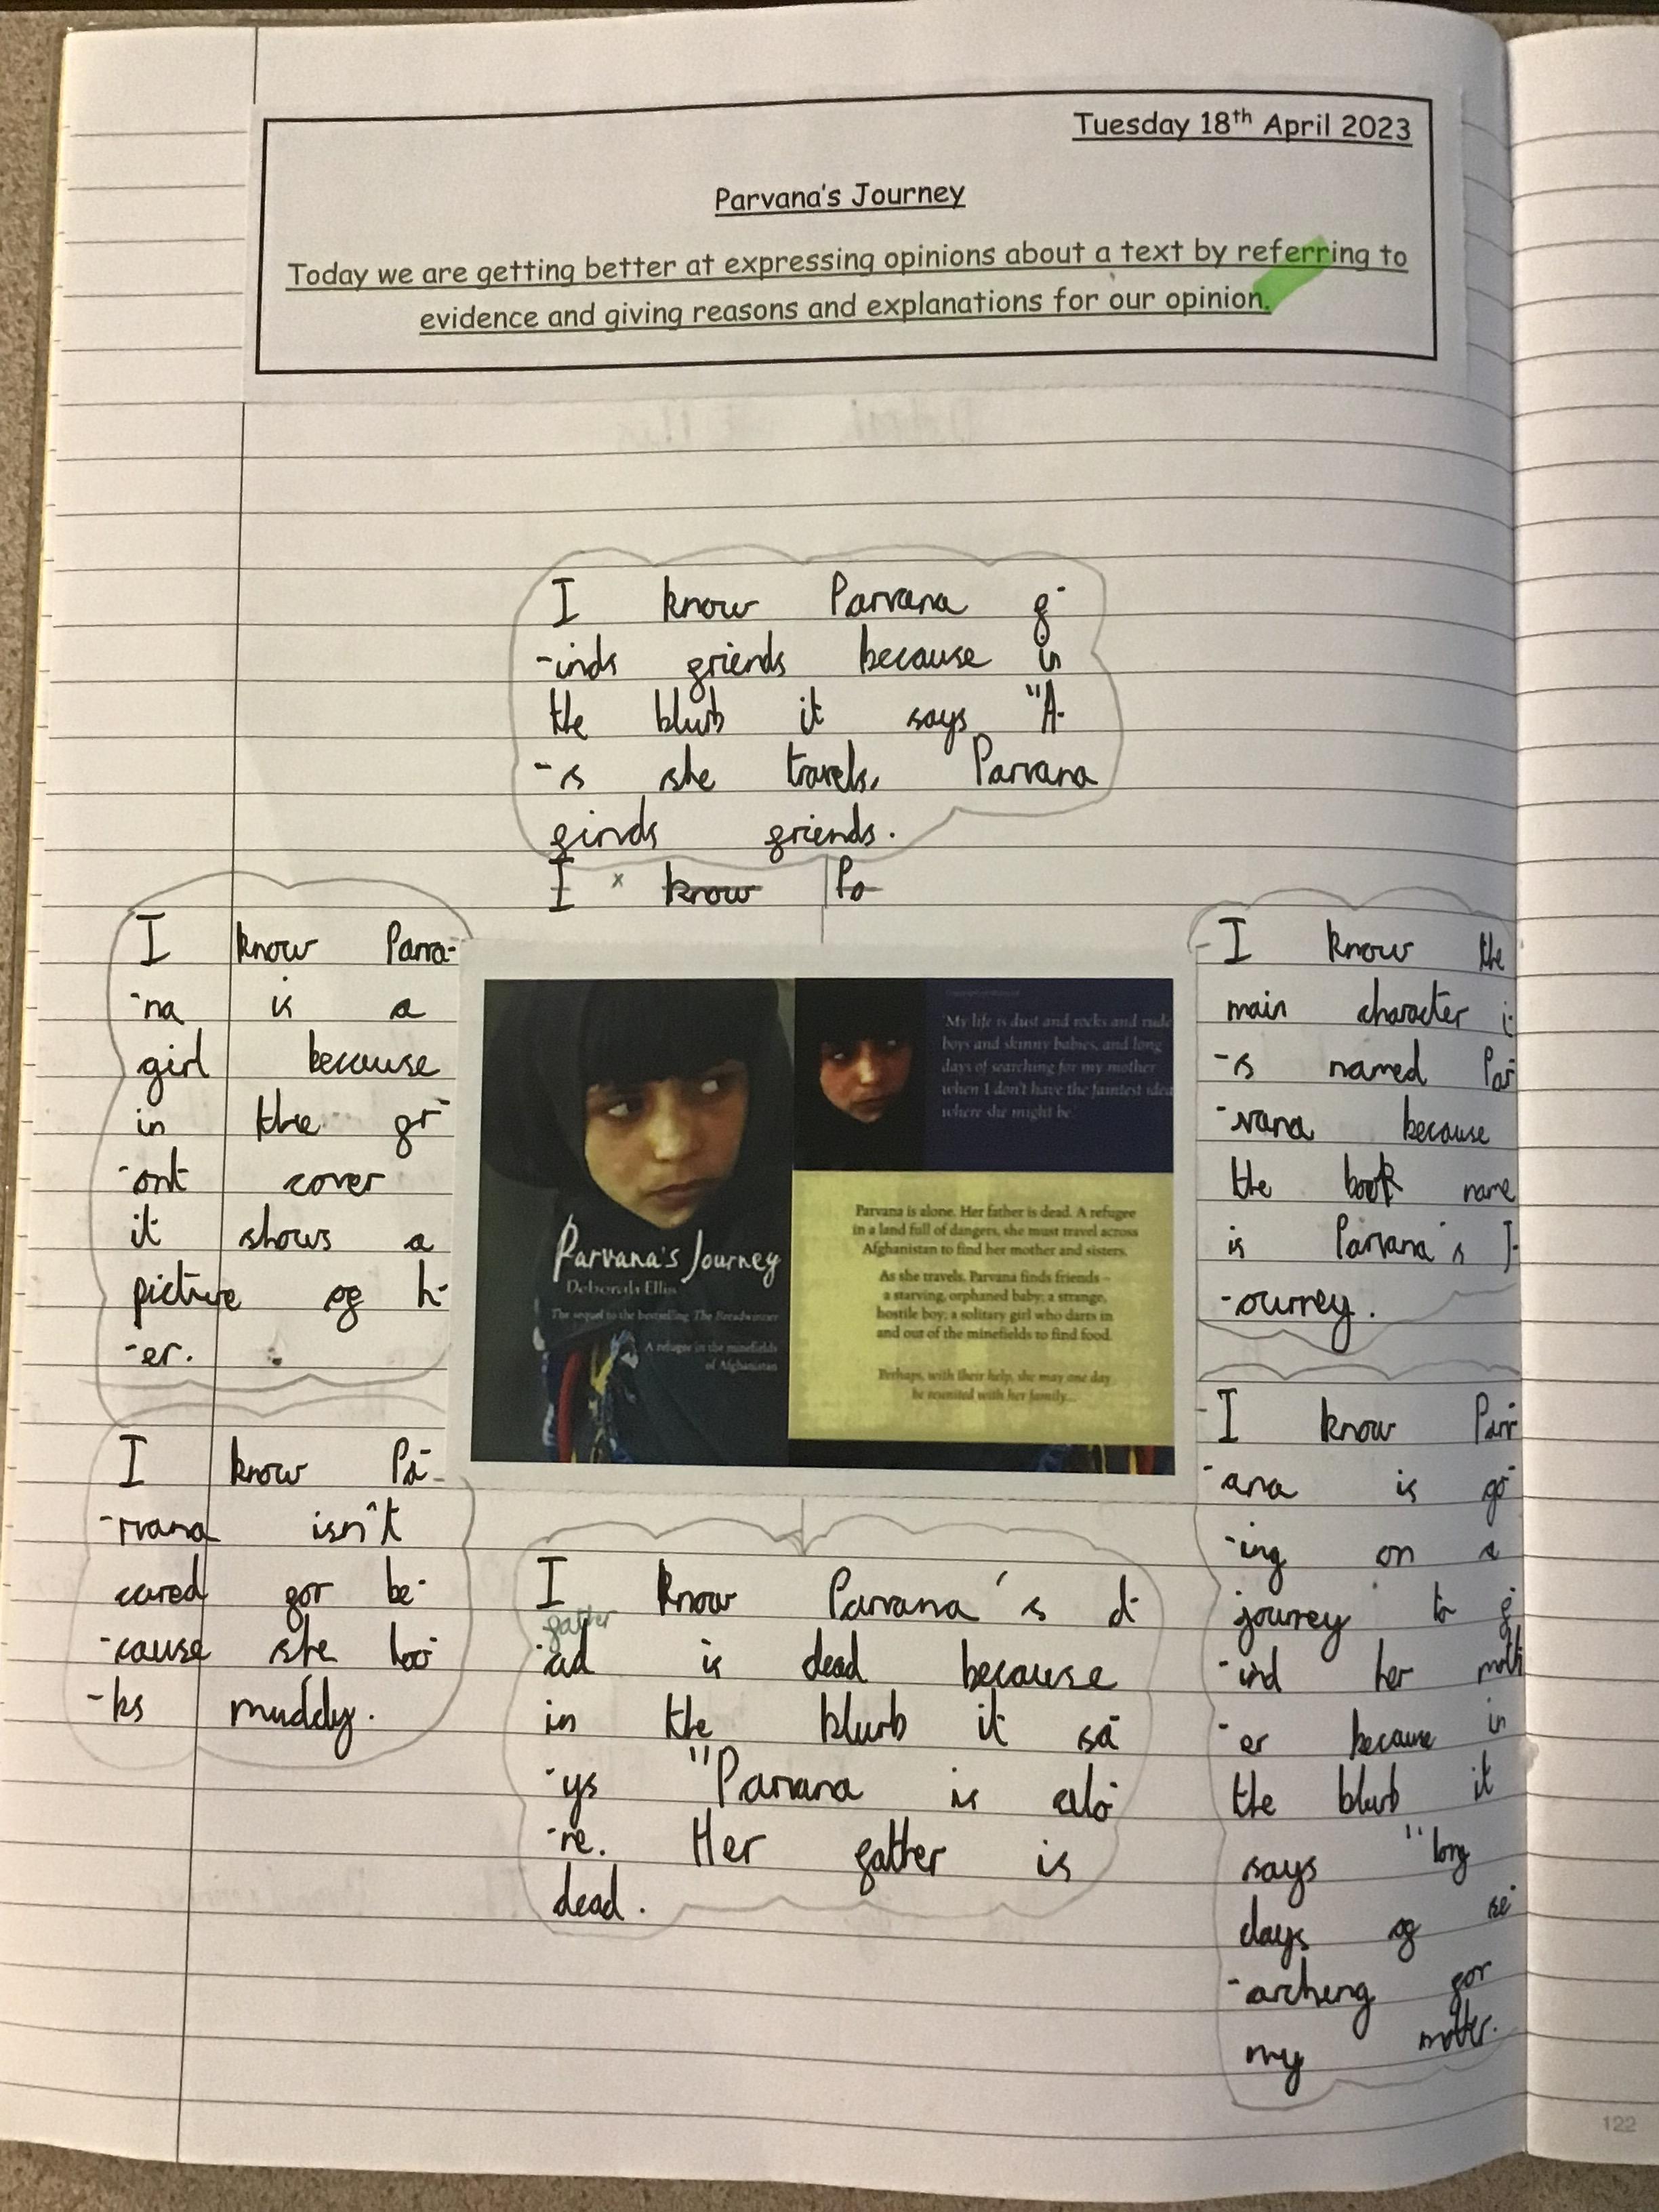 Tuesday 18th April 2023
Parvana's Journey
Today we are getting better at expressing opinions about a text by referring to
evidence and giving reasons and explanations for our opinion.
I know Parvana f-
-inds friends because in
the blurb it says "A-
-s she travels, Parvana
finds friends.
I x know Pa
I know Parva-
-na is a
girl because
in the fr-
-ont cover
it shows a
picture of h-
-er.
I know Pa-
-rvana isn't
cared for be-
-cause she loo-
-ks muddy.
Parvana's Journey
Deborah Ellis
The sequel to the bestselling The Breadwinner
A refugee in the minefields
of Afghanistan
'My life is dust and rocks and rude
boys and skinny babies, and long
days of searching for my mother
when I don't have the faintest idea
where she might be.'
Parvana is alone. Her father is dead. A refugee
in a land full of dangers, she must travel across
Afghanistan to find her mother and sisters.
As she travels, Parvana finds friends –
a starving, orphaned baby; a strange,
hostile boy; a solitary girl who darts in
and out of the minefields to find food.
Perhaps, with their help, she may one day
be reunited with her family...
I know Parvana's d-
father
-ad is dead because
in the blurb it sa-
-ys "Parvana is alo-
-ne. Her father is
dead.
-I know the
main character i-
-s named Par-
-vana because
the book name
is Parvana's J-
-ourney.
-I know Parv-
-ana is go-
-ing on a
journey to f-
-ind her moth-
-er because in
the blurb it
says "long
days of se-
-archeng for
my mother.
122